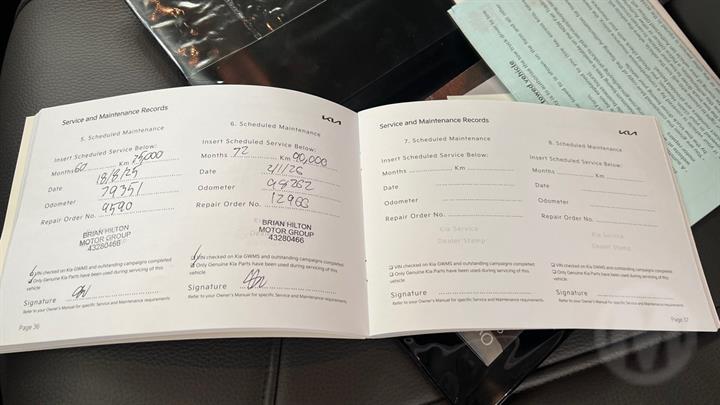 Service and Maintenance Records
KIA
5. Scheduled Maintenance
Insert Scheduled Service Below:
Months 60 Km 75,000
Date 18/8/25
Odometer 79351
Repair Order No. 9590
BRIAN HILTON
MOTOR GROUP
43280466
VIN checked on Kia GWMS and outstanding campaigns completed
Only Genuine Kia Parts have been used during servicing of this
vehicle
Signature
Refer to your Owner's Manual for specific Service and Maintenance requirements
Page 36
6. Scheduled Maintenance
Insert Scheduled Service Below:
Months 72 Km 90,000
Date
Odometer
Repair Order No.
BRIAN HILTON
MOTOR GROUP
43280466
VIN checked on Kia GWMS and outstanding campaigns completed
Only Genuine Kia Parts have been used during servicing of this
vehicle
Signature
Refer to your Owner's Manual for specific Service and Maintenance requirements
Service and Maintenance Records
KIA
7. Scheduled Maintenance
Insert Scheduled Service Below:
Months Km
Date
Odometer
Repair Order No.
Kia Service
Dealer Stamp
VIN checked on Kia GWMS and outstanding campaigns completed
Only Genuine Kia Parts have been used during servicing of this
vehicle
Signature
Refer to your Owner's Manual for specific Service and Maintenance requirements
8. Scheduled Maintenance
Insert Scheduled Service Below:
Months Km
Date
Odometer
Repair Order No.
Kia Service
Dealer Stamp
VIN checked on Kia GWMS and outstanding campaigns completed
Only Genuine Kia Parts have been used during servicing of this
vehicle
Signature
Refer to your Owner's Manual for specific Service and Maintenance requirements
Page 37
towed vehicle